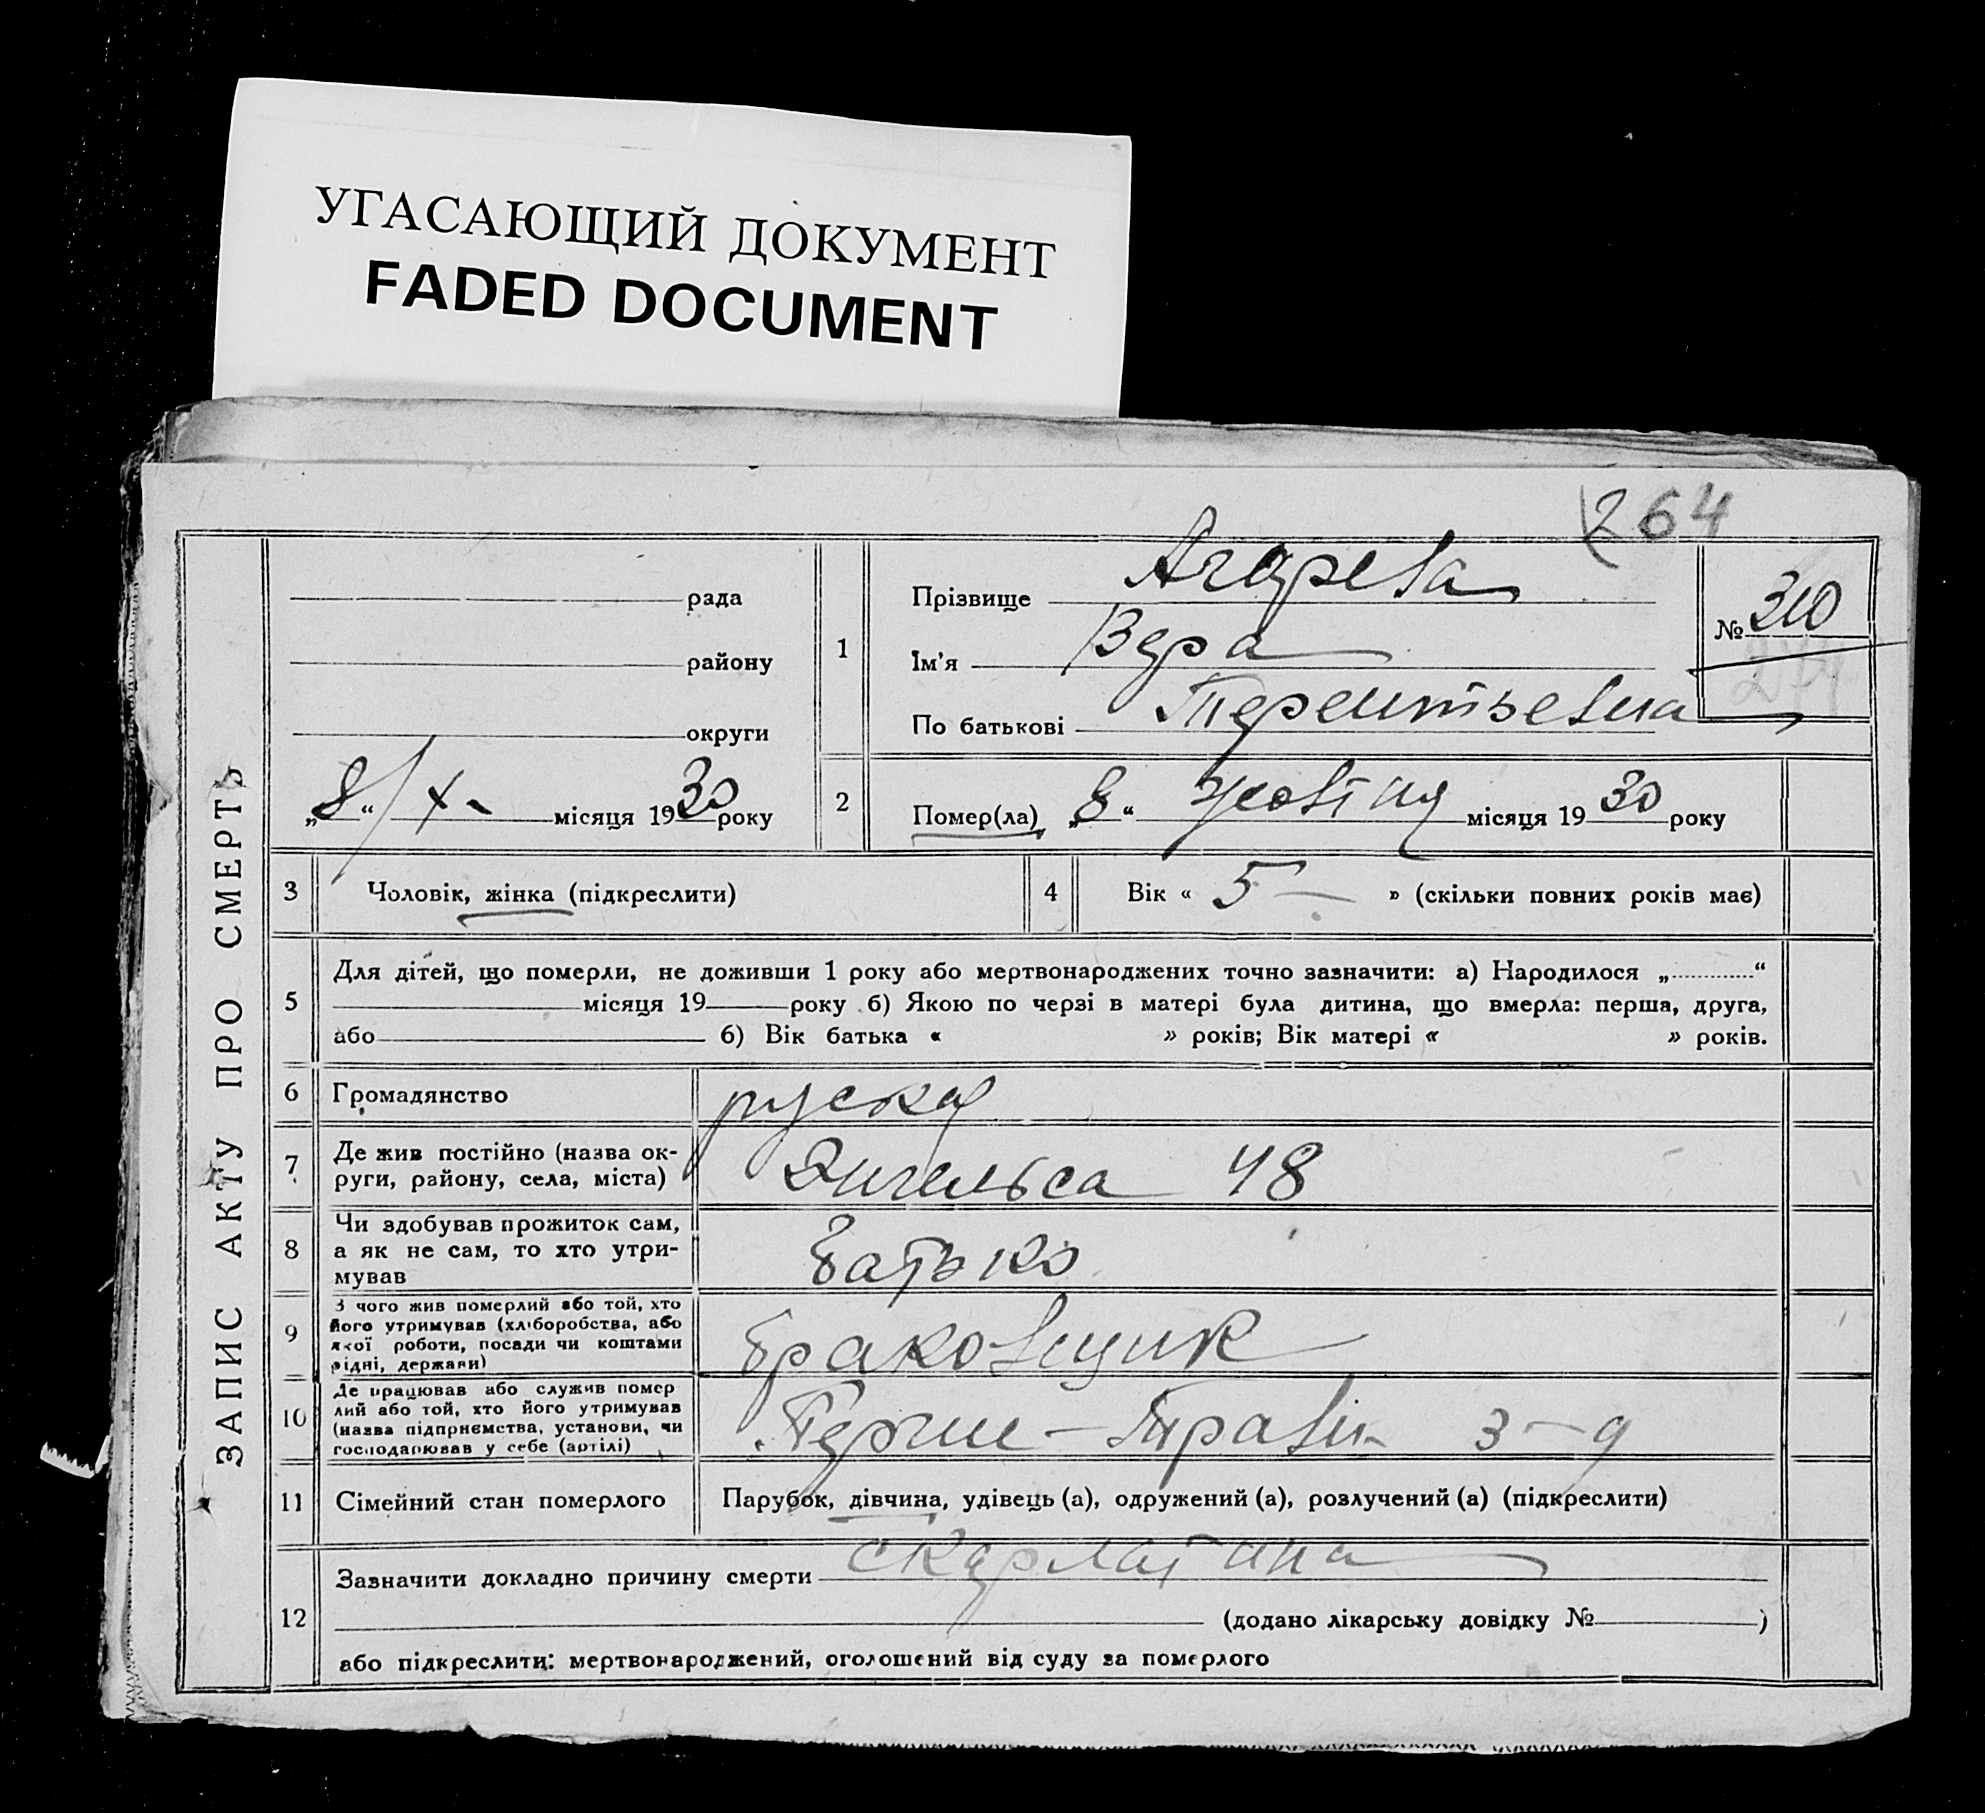 УГАСАЮЩИЙ ДОКУМЕНТ
FADED DOCUMENT
264
ЗАПИС АКТУ ПРО СМЕРТЬ
рада
району
округи
„8“ / X - місяця 1930 року
1
Прізвище Агарева
Ім'я Вера
По батькові Терентьевна
№ 310
274
2
Помер(ла) „8“ жовтня місяця 1930 року
3
Чоловік, жінка (підкреслити)
4
Вік « 5 — » (скільки повних років має)
5
Для дітей, що померли, не доживши 1 року або мертвонароджених точно зазначити: а) Народилося „............“
місяця 19 року б) Якою по черзі в матері була дитина, що вмерла: перша, друга,
або б) Вік батька « » років; Вік матері « » років.
6
Громадянство
руска
7
Де жив постійно (назва ок-
руги, району, села, міста)
Энгельса 48
8
Чи здобував прожиток сам,
а як не сам, то хто утри-
мував
батько
9
З чого жив померлий або той, хто
його утримував (хліборобства, або
якої роботи, посади чи коштами
рідні, держави)
браковщик
10
Де працював або служив помер
лий або той, хто його утримував
(назва підприємства, установи, чи
господарював у себе (артілі)
Перше-Травн- з-д
11
Сімейний стан померлого
Парубок, дівчина, удівець (а), одружений (а), розлучений (а) (підкреслити)
12
Зазначити докладно причину смерти скарлатина
(додано лікарську довідку № )
або підкреслити: мертвонароджений, оголошений від суду за померлого